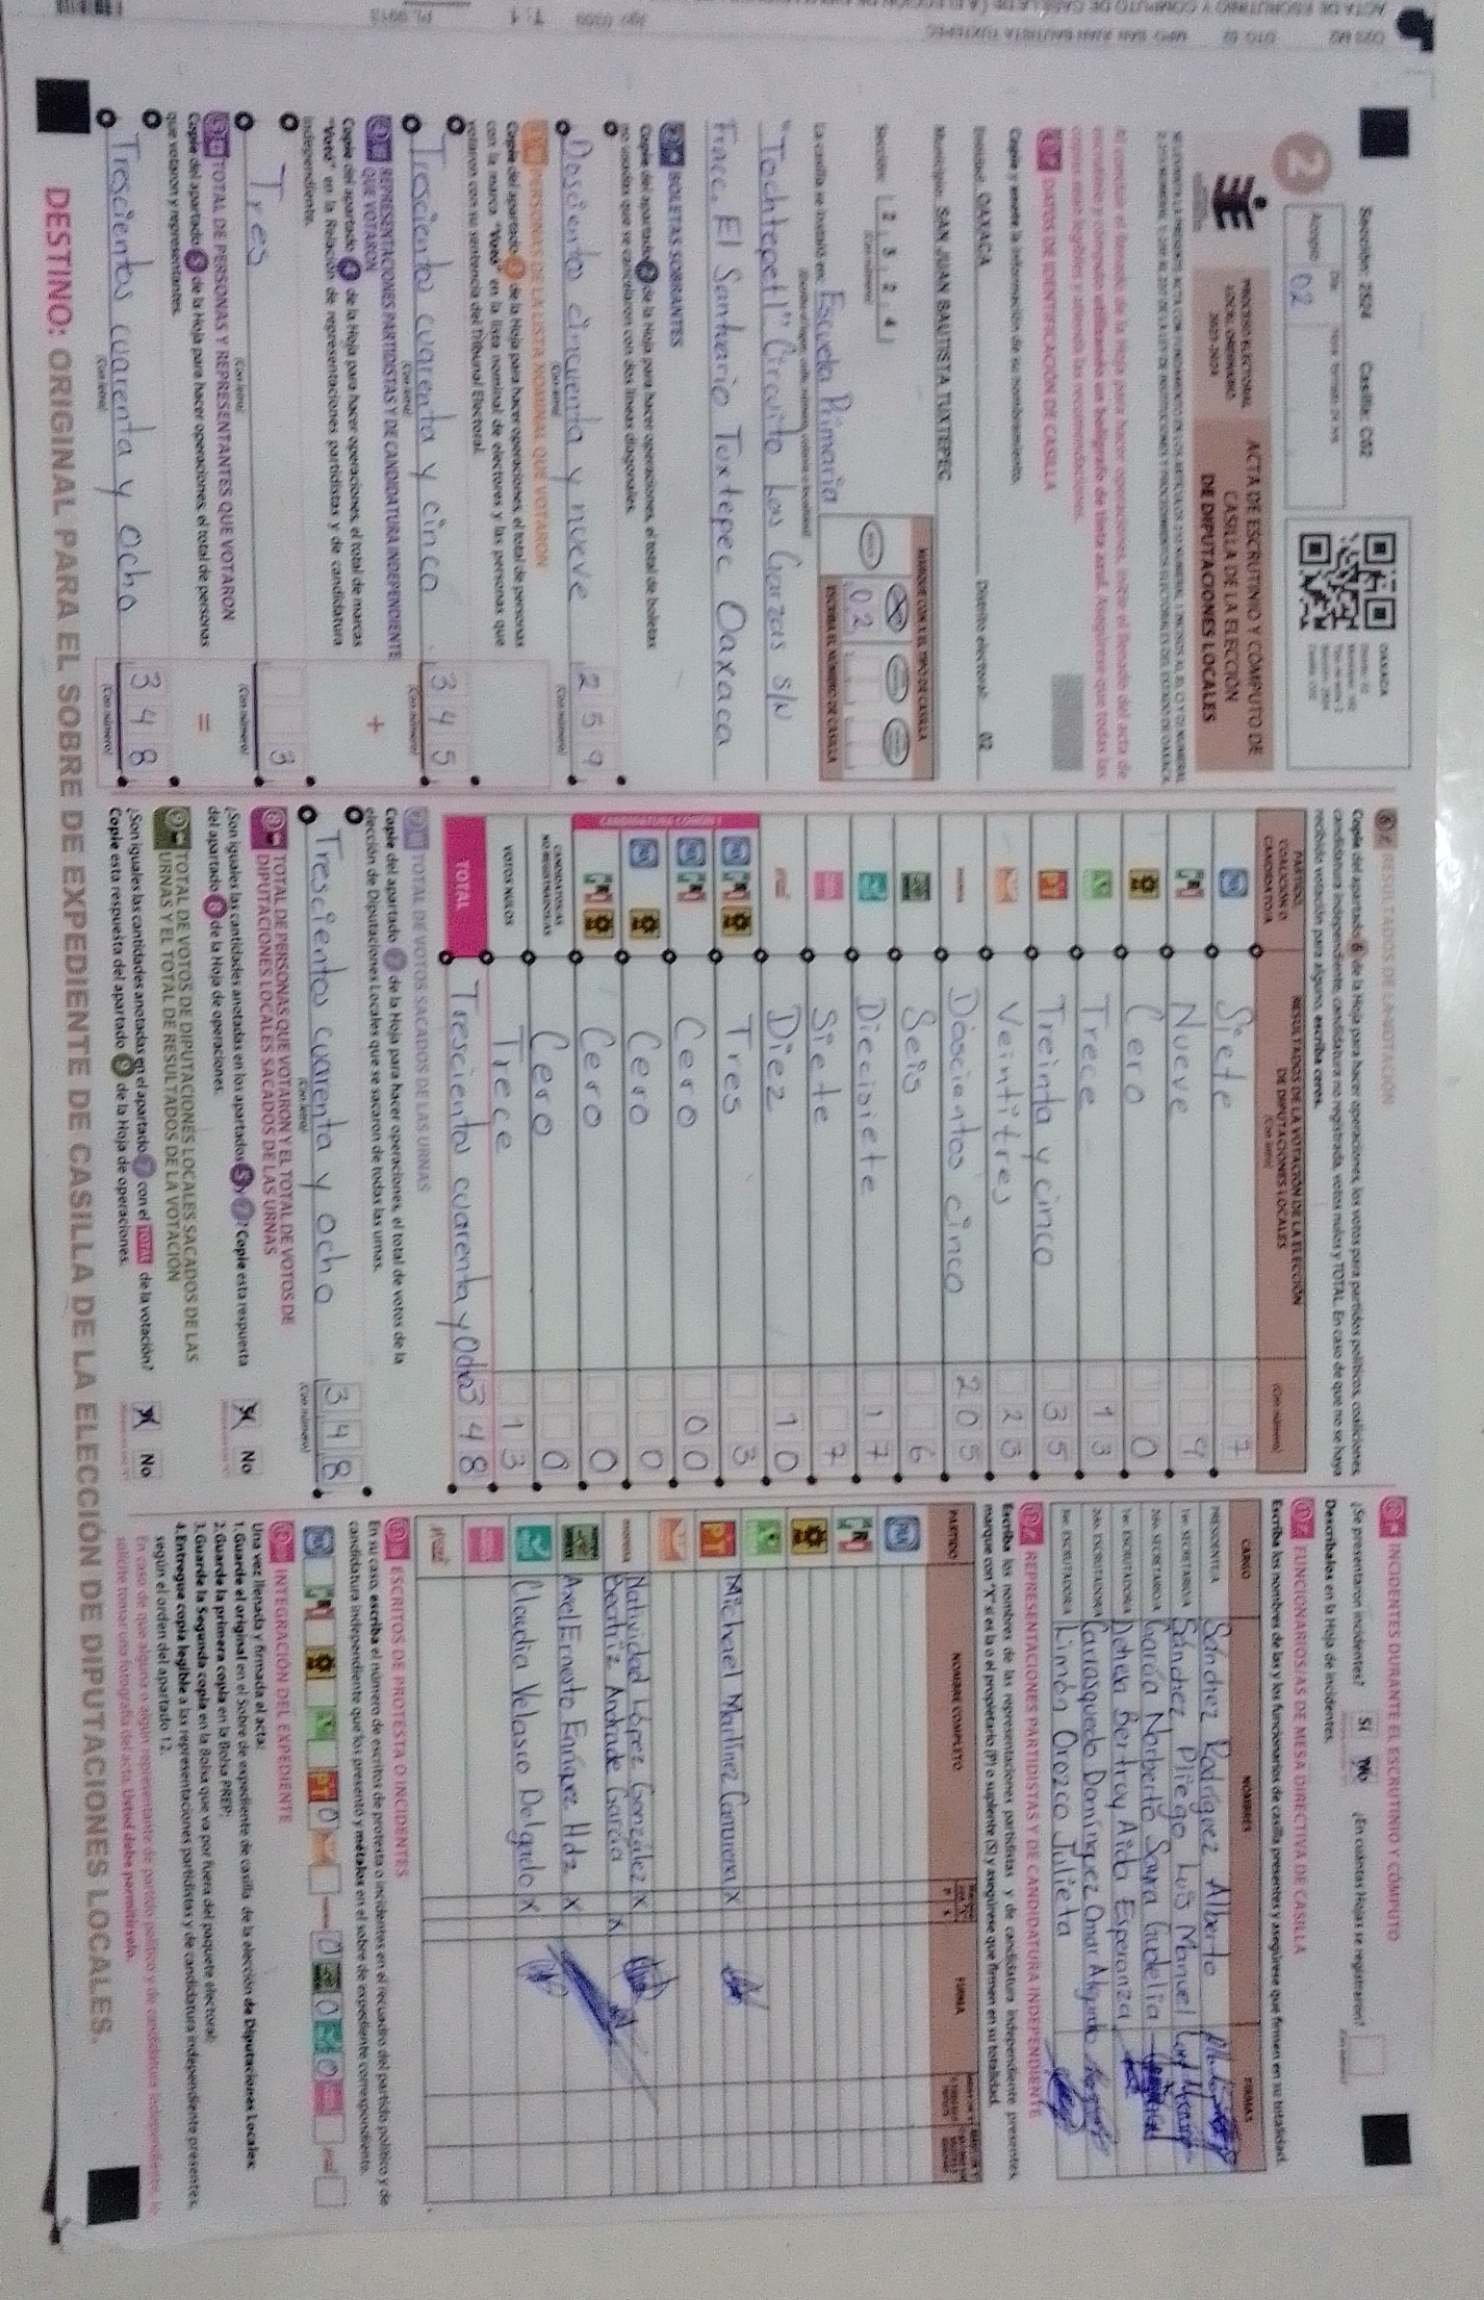 Sección: 2524 Casilla: C02
2
Acopio 02
PROCESO ELECTORAL
LOCAL ORDINARIO
2023-2024
ACTA DE ESCRUTINIO Y CÓMPUTO DE
CASILLA DE LA ELECCIÓN
DE DIPUTACIONES LOCALES
OAXACA
Al concluir el llenado de la Hoja para hacer operaciones, inicie el llenado del acta de
escrutinio y cómputo utilizando un bolígrafo de tinta azul. Asegúrese que todas las
copias sean legibles y atienda las recomendaciones.
1 DATOS DE IDENTIFICACIÓN DE CASILLA
Copie y anote la información de su nombramiento.
Entidad: OAXACA Distrito electoral: 02
Municipio: SAN JUAN BAUTISTA TUXTEPEC
Sección: 2 5 2 4
(Con número)
MARQUE CON X EL TIPO DE CASILLA
ESCRIBA EL NÚMERO DE CASILLA
02
La casilla se instaló en: Escuela Primaria
"Tochtepetl" Circuito Los Garzas S/N
Fracc. El Santuario Tuxtepec Oaxaca
2 BOLETAS SOBRANTES
Copie del apartado 2 de la Hoja para hacer operaciones, el total de boletas
no usadas que se cancelaron con dos líneas diagonales.
Doscientos cincuenta y nueve 259
(Con letra) (Con número)
3 PERSONAS DE LA LISTA NOMINAL QUE VOTARON
Copie del apartado 3 de la Hoja para hacer operaciones, el total de personas
con la marca "Votó" en la lista nominal de electores y las personas que
votaron con su sentencia del Tribunal Electoral.
Trescientos cuarenta y cinco 345
(Con letra) (Con número)
4 REPRESENTACIONES PARTIDISTAS Y DE CANDIDATURA INDEPENDIENTE
QUE VOTARON
Copie del apartado 4 de la Hoja para hacer operaciones, el total de marcas
"Votó" en la Relación de representaciones partidistas y de candidatura
independiente.
+
Tres 3
(Con letra) (Con número)
5 TOTAL DE PERSONAS Y REPRESENTANTES QUE VOTARON
Copie del apartado 5 de la Hoja para hacer operaciones, el total de personas
que votaron y representantes.
=
Trescientos cuarenta y ocho 348
(Con letra) (Con número)
6 RESULTADOS DE LA VOTACIÓN
Copie del apartado 6 de la Hoja para hacer operaciones, los votos para partidos políticos, coaliciones,
candidatura independiente, candidatura no registrada, votos nulos y TOTAL. En caso de que no se haya
recibido votación para alguno, escriba ceros.
PARTIDO,
COALICIÓN O
CANDIDATO/A
RESULTADOS DE LA VOTACIÓN DE LA ELECCIÓN
DE DIPUTACIONES LOCALES
(Con letra) (Con número)
PAN Siete 7
PRI Nueve 9
Cero 0
Trece 13
PT Treinta y cinco 35
Veintitres 23
morena Doscientos cinco 205
Seis 6
Diecisiete 17
Siete 7
Diez 10
CANDIDATURA COMÚN
PAN PRI Tres 3
PAN PRI Cero 00
PAN Cero 0
PRI Cero 0
CANDIDATOS/AS
NO REGISTRADOS/AS Cero 0
VOTOS NULOS Trece 13
TOTAL Trescientos cuarenta y Ocho 348
7 TOTAL DE VOTOS SACADOS DE LAS URNAS
Copie del apartado 7 de la Hoja para hacer operaciones, el total de votos de la
elección de Diputaciones Locales que se sacaron de todas las urnas.
Trescientos cuarenta y ocho 348
(Con letra) (Con número)
8 TOTAL DE PERSONAS QUE VOTARON Y EL TOTAL DE VOTOS DE
DIPUTACIONES LOCALES SACADOS DE LAS URNAS
¿Son iguales las cantidades anotadas en los apartados 5 y 7? Copie esta respuesta
del apartado 8 de la Hoja de operaciones.
Sí No
9 TOTAL DE VOTOS DE DIPUTACIONES LOCALES SACADOS DE LAS
URNAS Y EL TOTAL DE RESULTADOS DE LA VOTACIÓN
¿Son iguales las cantidades anotadas en el apartado 7 con el TOTAL de la votación?
Copie esta respuesta del apartado 9 de la Hoja de operaciones.
Sí No
INCIDENTES DURANTE EL ESCRUTINIO Y CÓMPUTO
¿Se presentaron incidentes? Sí No ¿En cuántas Hojas se registraron?
Descríbalos en la Hoja de incidentes.
11 FUNCIONARIOS/AS DE MESA DIRECTIVA DE CASILLA
Escriba los nombres de las y los funcionarios de casilla presentes y asegúrese que firmen en su totalidad.
CARGO NOMBRES FIRMAS
PRESIDENTE/A Sánchez Rodríguez Alberto
1er. SECRETARIO/A Sánchez Pliego Luis Manuel
2do. SECRETARIO/A García Norberto Sayra Gudelia
1er. ESCRUTADOR/A Dehesa Bertruy Aida Esperanza
2do. ESCRUTADOR/A Carrasquedo Domínguez Omar
3er. ESCRUTADOR/A Limón Orozco Julieta
12 REPRESENTACIONES PARTIDISTAS Y DE CANDIDATURA INDEPENDIENTE
Escriba los nombres de las representaciones partidistas y de candidatura independiente presentes,
marque con "X" si es la o el propietario (P) o suplente (S) y asegúrese que firmen en su totalidad.
PARTIDO NOMBRE COMPLETO FIRMA
PAN
PRI
PT Michael Martínez X
morena Natividad López González X
Beatriz Andrade García X
Asel Ernesto Enríquez Hdz X
Claudia Velasco Delgado X
13 ESCRITOS DE PROTESTA O INCIDENTES
En su caso, escriba el número de escritos de protesta o incidentes en el recuadro del partido político y de
candidatura independiente que los presentó y métalos en el sobre de expediente correspondiente.
PT 0 0 0 0
INTEGRACIÓN DEL EXPEDIENTE
Una vez llenada y firmada el acta:
1.Guarde el original en el Sobre de expediente de casilla de la elección de Diputaciones Locales;
2.Guarde la primera copia en la Bolsa PREP;
3.Guarde la Segunda copia en la Bolsa que va por fuera del paquete electoral;
4.Entregue copia legible a las representaciones partidistas y de candidatura independiente presentes,
según el orden del apartado 12.
En caso de que alguna o algún representante de partido político y de candidatura independiente lo
solicite tomar una fotografía del acta, Usted debe permitírselo.
DESTINO: ORIGINAL PARA EL SOBRE DE EXPEDIENTE DE CASILLA DE LA ELECCIÓN DE DIPUTACIONES LOCALES.